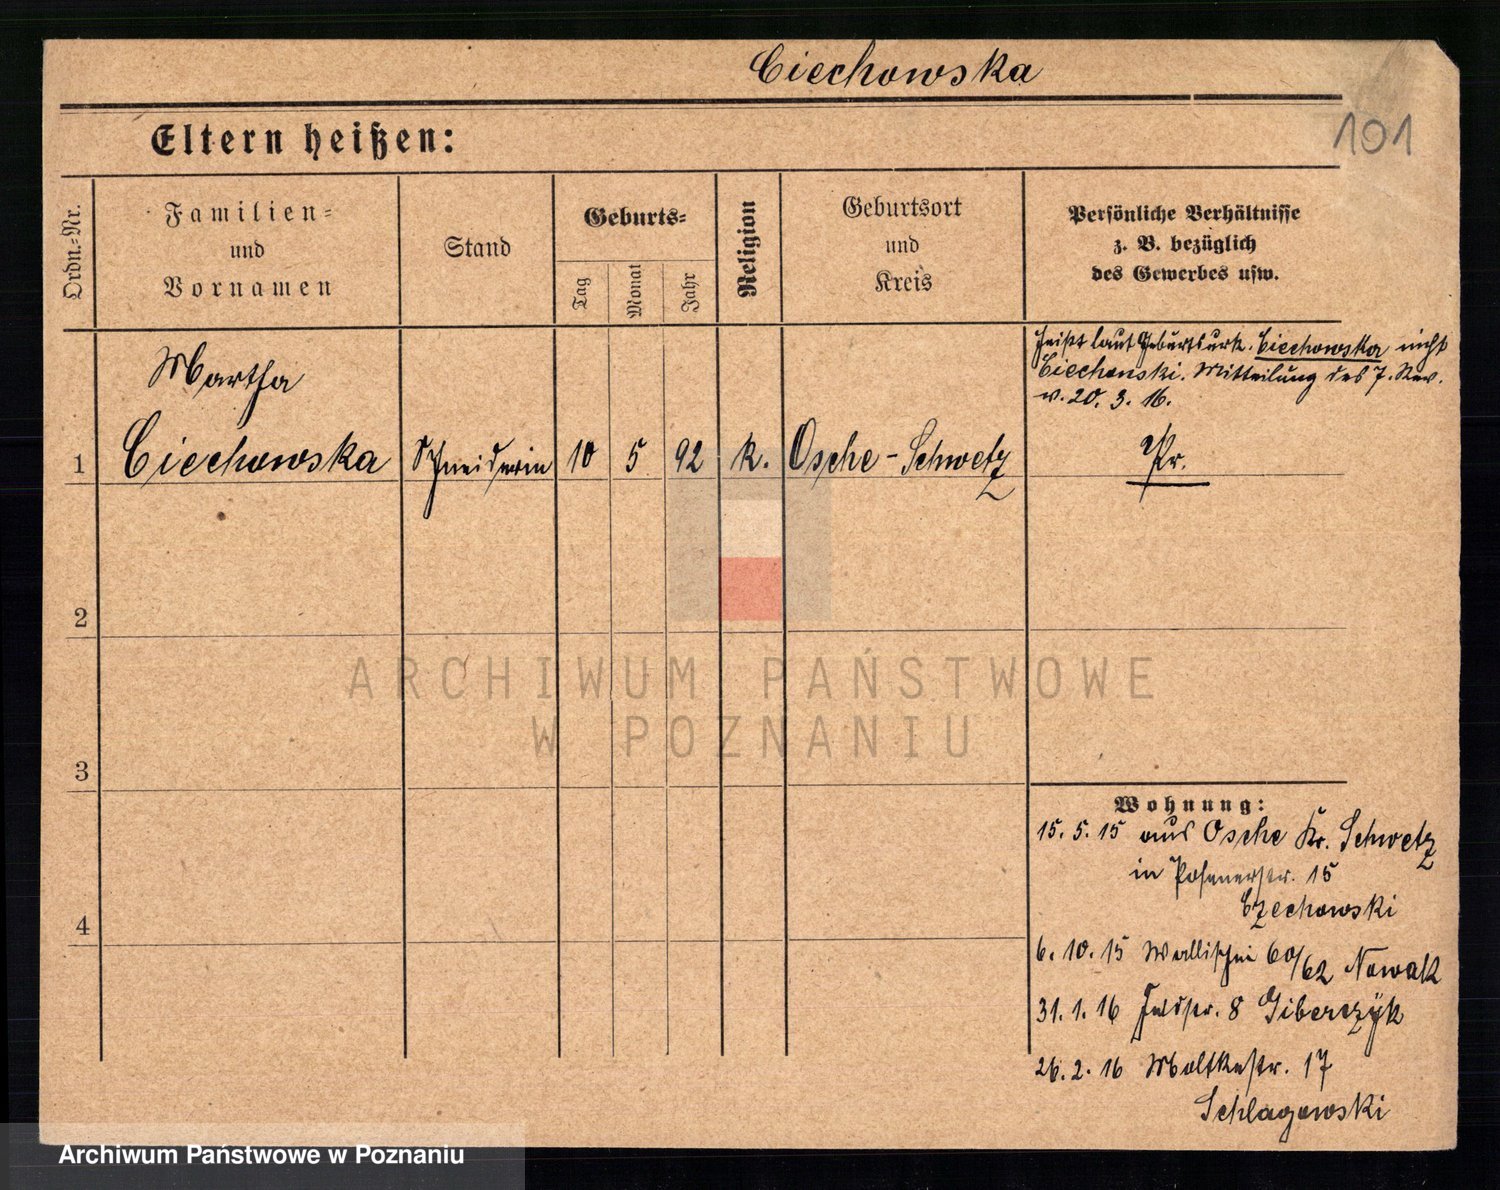 Ciechowska
101
Eltern heißen:
Ordn.=Nr.
Familien=
und
Vornamen
Stand
Geburts=
Tag
Monat
Jahr
Religion
Geburtsort
und
Kreis
Persönliche Verhältnisse
z. B. bezüglich
des Gewerbes usw.
heißt laut Geburtsurk. Ciechowska nicht
Ciechowski. Mitteilung des 7. Rev.
v. 20. 3. 16.
Martha
1 Ciechowska Schneiderin 10 5 92 k. Osche - Schwetz Pr.
2
3
4
Wohnung:
15. 5. 15 aus Osche Kr. Schwetz
in Posenerstr. 15
Czechowski
6. 10. 15 Wallischei 60/62 Nowak
31. 1. 16 Feldstr. 8 Giberczyk
26. 2. 16 Moltkestr. 17
Schlagowski
ARCHIWUM PAŃSTWOWE
W POZNANIU
Archiwum Państwowe w Poznaniu